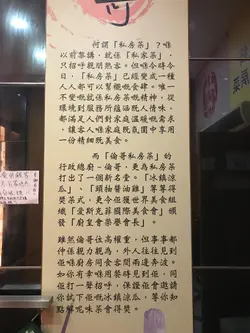 何謂「私房菜」？喺
以前黎講，就係「私家菜」，
只招呼親朋熟客。但喺今時今
日，「私房菜」已經變成一種
人人都可以幫襯嘅食肆。唯一
不變嘅就係私房菜嘅精神，從
環境到服務所蘊涵既人情味，
都滿足人們對家庭溫暖嘅需求，
讓客人喺家庭既氛圍中享用
一份精細既美食。
而「倫哥私房菜」的
行政總廚－倫哥，更為私房菜
打出了一個新名堂。「冰鎮涼
瓜」、「頭抽醬油雞」等等得
獎菜式，更令佢獲世界美食組
織「愛斯克菲國際美食會」頒
發「廚皇會榮譽會長」。
雖然倫哥位高權重，但事事都
仲係親力親為，外人往往見到
佢喺廚房同食客間兩邊奔波。
如你有幸喺用餐時見到佢，同
佢打一聲招呼，保證佢會邀請
你試下佢嘅冰鎮涼瓜，等你如
點解呢味菜會得獎。